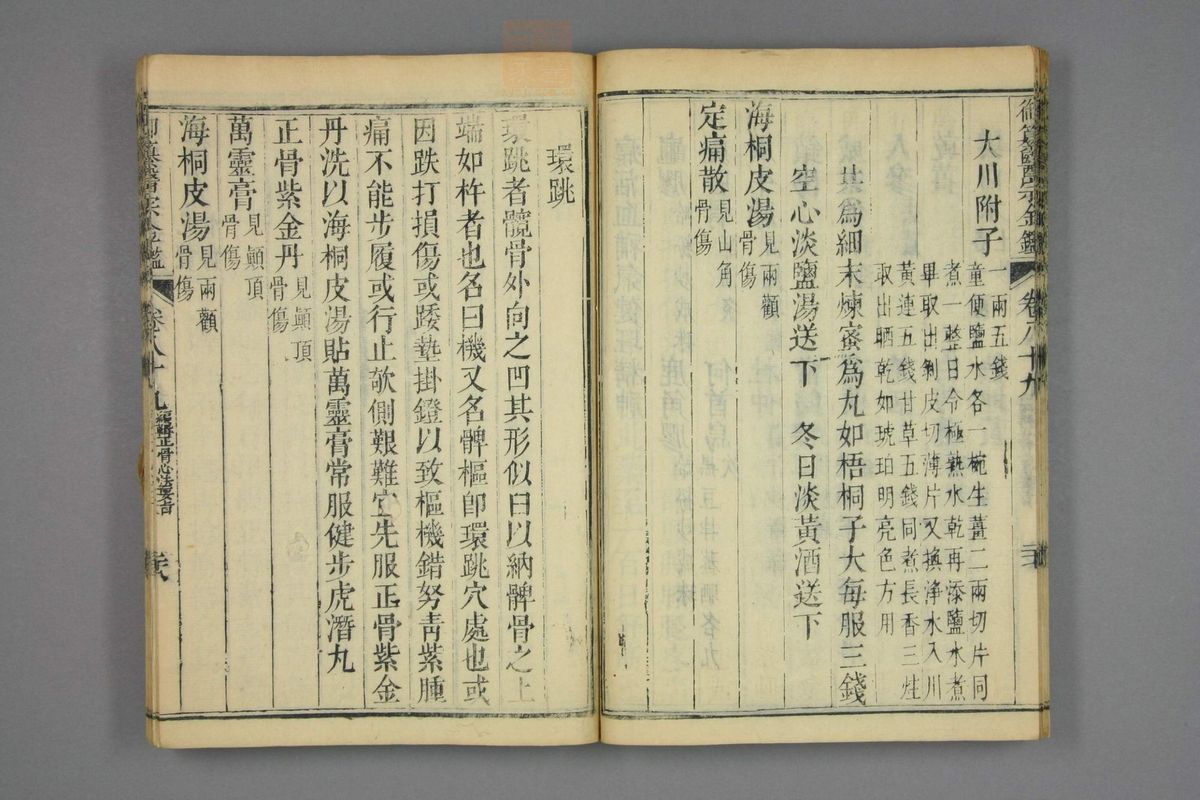 御纂醫宗金鑑 卷八十九
大川附子
一兩五錢
童便鹽水各一椀生薑二兩切片同
煮一整日令極熟水乾再添鹽水煮
畢取出剝皮切薄片又換淨水入川
黃連五錢甘草五錢同煮長香三炷
取出晒乾如琥珀明亮色方用
共爲細末煉蜜爲丸如梧桐子大每服三錢
空心淡鹽湯送下 冬日淡黃酒送下
海桐皮湯 見兩顴
骨傷
定痛散 見山角
骨傷
環跳
環跳者髖骨外向之凹其形似臼以納髀骨之上
端如杵者也名曰機又名髀樞卽環跳穴處也或
因跌打損傷或踒墊掛鐙以致樞機錯努靑紫腫
痛不能步履或行止欹側艱難宜先服正骨紫金
丹洗以海桐皮湯貼萬靈膏常服健步虎潛丸
正骨紫金丹 見顚頂
骨傷
萬靈膏 見顚頂
骨傷
海桐皮湯 見兩顴
骨傷
卷八十九 編輯正骨心法要旨